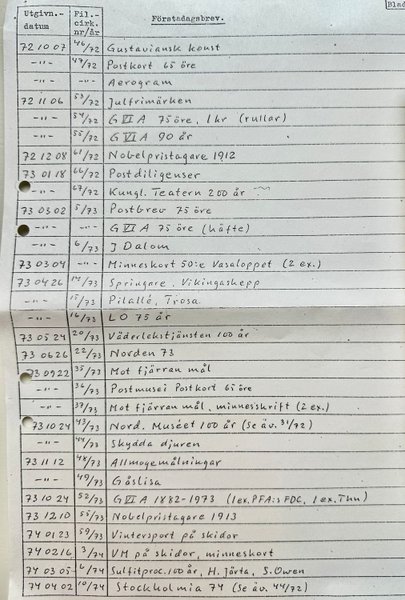 Blad
Utgivn.- datum Fil.- cirk. nr/år Förstadagsbrev.
72 10 07 46/72 Gustaviansk konst
-"- 47/72 Postkort 65 öre
-"- -"- Aerogram
72 11 06 53/72 Julfrimärken
-"- 54/72 G VI A 75 öre, 1 kr (rullar)
-"- 55/72 G VI A 90 år
72 12 08 61/72 Nobelpristagare 1912
73 01 18 66/72 Postdiligenser
-"- 67/72 Kungl. Teatern 200 år
73 03 02 5/73 Postbrev 75 öre
-"- -"- G VI A 75 öre (häfte)
-"- 6/73 I Dalom
73 03 04 -"- Minneskort 50:e Vasaloppet (2 ex.)
73 04 26 14/73 Springare, Vikingaskepp
-"- 15/73 Pilallé, Trosa
-"- 16/73 LO 75 år
73 05 24 20/73 Väderlekstjänsten 100 år
73 06 26 22/73 Norden 73
73 09 22 35/73 Mot fjärran mål
-"- 36/73 Postmusei Postkort 65 öre
-"- 37/73 Mot fjärran mål, minnesskrift (2 ex.)
73 10 24 43/73 Nord. Muséet 100 år (Se äv. 31/72)
-"- 44/73 Skydda djuren
73 11 12 48/73 Allmogemålningar
-"- 49/73 Gåslisa
73 10 24 52/73 G VI A 1882-1973 (1 ex. PFA:s FDC, 1 ex.
73 12 10 55/73 Nobelpristagare 1913
74 01 23 59/73 Vintersport på skidor
74 02 16 3/74 VM på skidor, minneskort
74 03 05 6/74 Sulfitproc. 100 år, H. Järta, S. Owen
74 04 02 10/74 Stockholmia 74 (Se äv. 44/72)